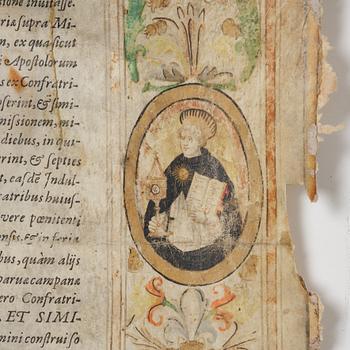 sione inuitasse.
ria supra Mi-
n, ex qua sicut
i Apostolorum
s ex Confratri-
oserint, & simi-
missionem, mi-
diebus, in qui-
rint, & septies
t, easdē Indul-
catribus huius-
vere pœnitenti
ensis, & in feria
bus, quàm alijs
parua campana
ero Confratri-
. ET SIMI-
mini construi so